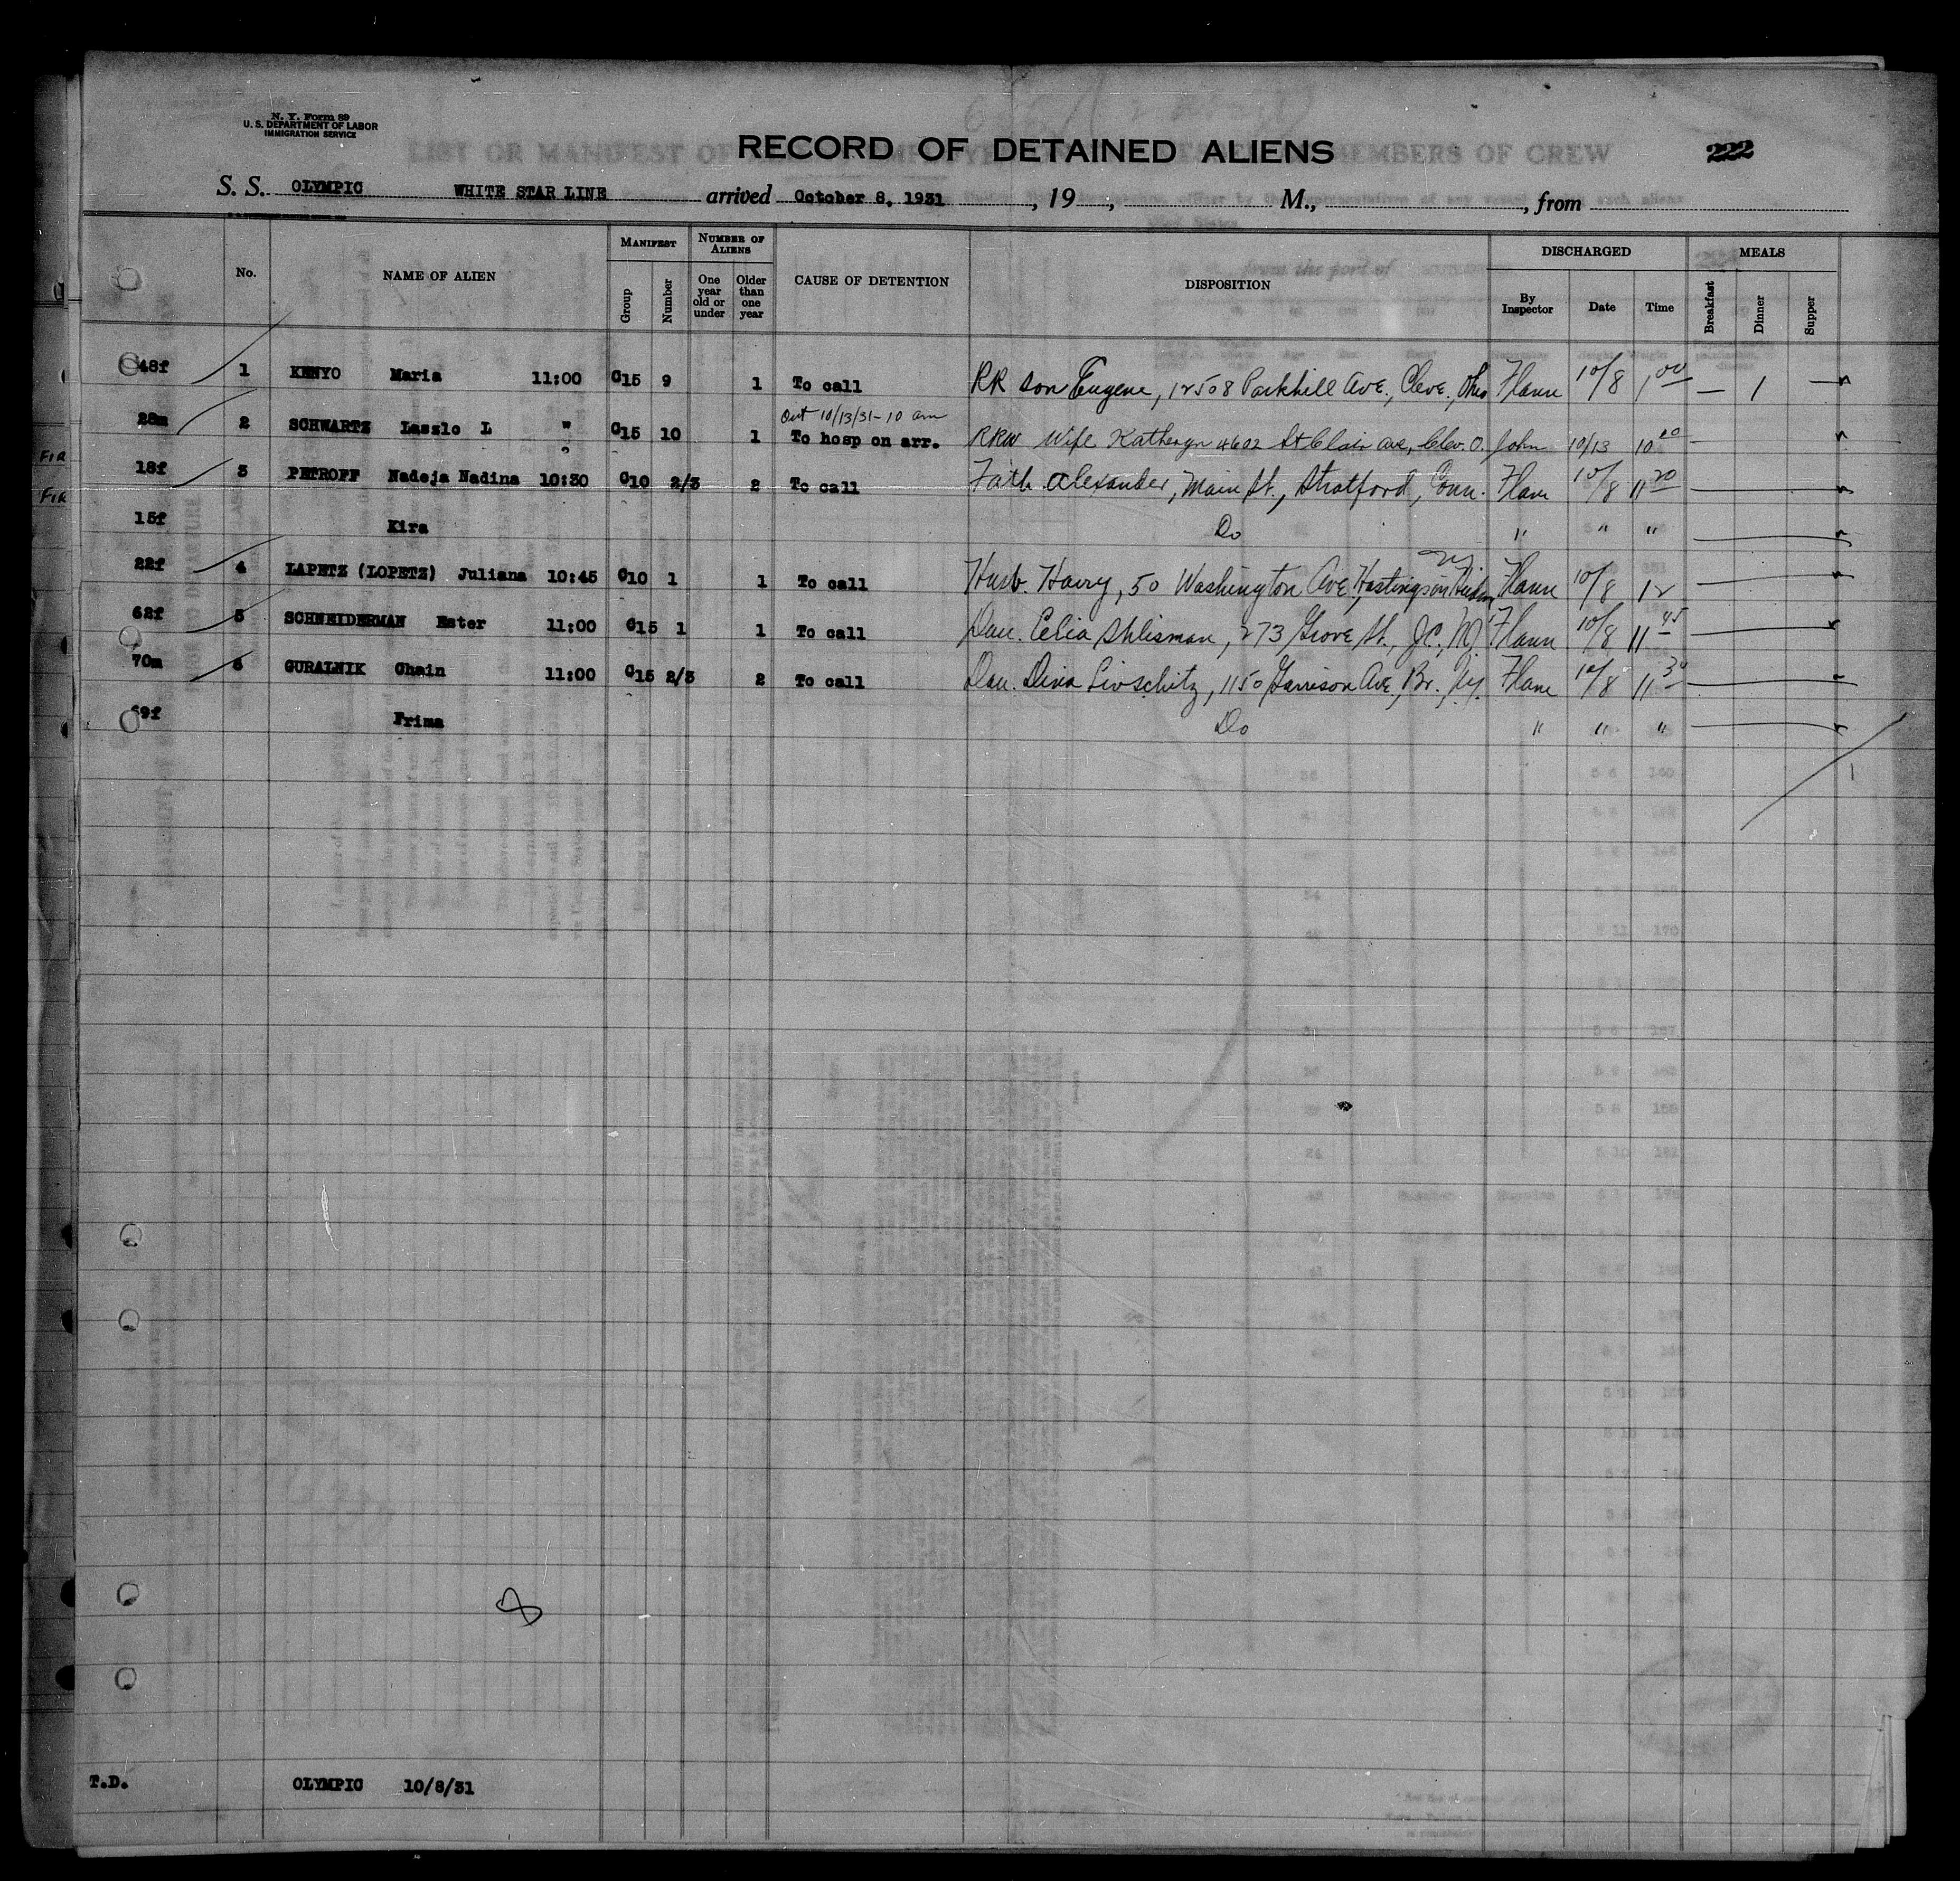 N. Y. Form 89
U. S. DEPARTMENT OF LABOR
IMMIGRATION SERVICE
RECORD OF DETAINED ALIENS
222
S. S. OLYMPIC WHITE STAR LINE arrived October 8, 1931, 19, M., from
No. NAME OF ALIEN MANIFEST Group Number NUMBER OF ALIENS One year old or under Older than one year CAUSE OF DETENTION DISPOSITION DISCHARGED By Inspector Date Time MEALS Breakfast Dinner Supper
48f 1 KENYO Maria 11:00 C15 9 1 To call RR son Eugene, 12508 Parkhill Ave., Cleve., Ohio Flann 10/8 1 00 — 1 —
Out 10/13/31 - 10 am
28m 2 SCHWARTZ Laszlo L " C15 10 1 To hosp on arr. RRW Wife Katheryn 4602 St Clair Ave, Clev. O. John 10/13 10
FIR
18f 3 PETROFF Nadeja Nadina 10:30 C10 2/3 2 To call Fath Alexander, Main St., Stratford, Conn. Flann 10/8 11 20
FIR
15f Kira Do " " "
22f 4 LAPETZ (LOPETZ) Juliana 10:45 C10 1 1 To call Husb. Harry, 50 Washington Ave., Hastings on Hudson NY Flann 10/8 12
62f 5 SCHNEIDERMAN Ester 11:00 C15 1 1 To call Dau. Celia Shlisman, 273 Grove St., J.C., NJ. Flann 10/8 11 45
70m 6 GURALNIK Chain 11:00 C15 2/3 2 To call Dau. Livschitz, 1150 Garrison Ave., Bx., N.Y. Flann 10/8 11 30
69f Frima Do " " "
8
T.D. OLYMPIC 10/8/31